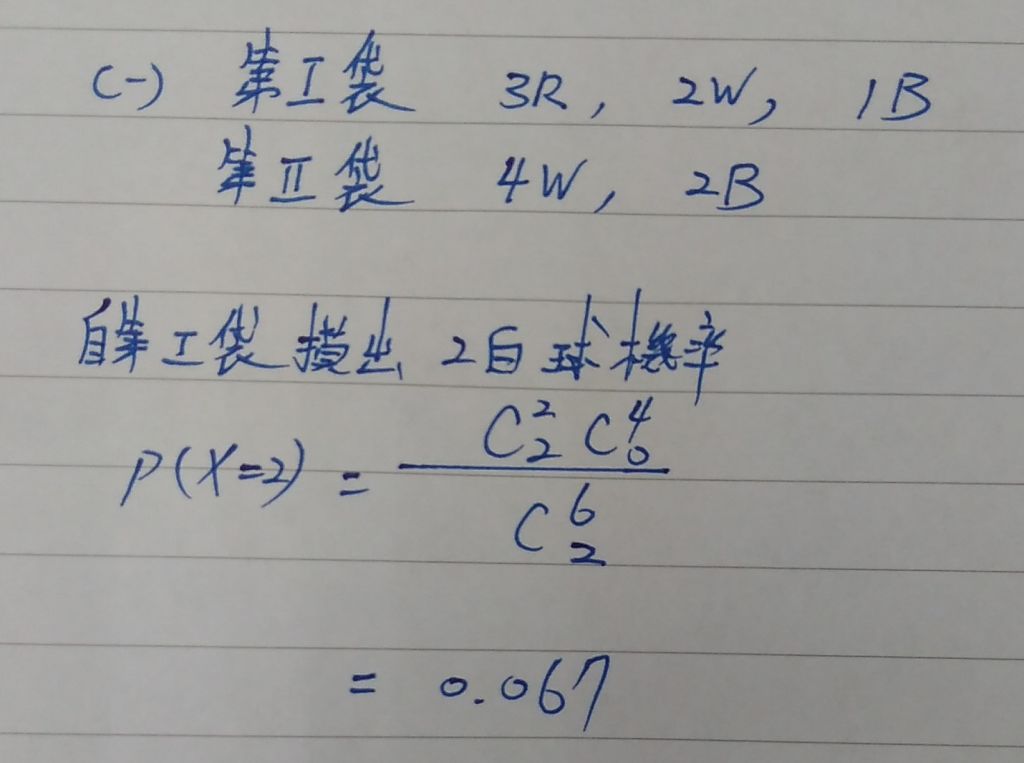 (一) 第I袋 3R, 2W, 1B
第II袋 4W, 2B
自第I袋摸出 2白球機率
P(X=2) = \frac{C^2_2 C^4_0}{C^6_2}
= 0.067